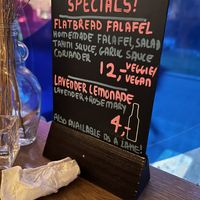 SPECIALS!
FLATBREAD FALAFEL
HOMEMADE FALAFEL, SALAD
TAHINI SAUCE, GARLIC SAUCE
CORIANDER
12,- VEGGIE/
VEGAN
LAVENDER LEMONADE
LAVENDER + ROSEMARY
4,-
ALSO AVAILABLE AS A LATTE!